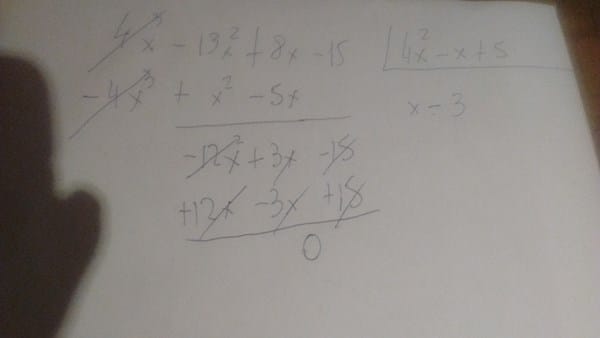 4x³ - 13x² + 8x - 15 | 4x² - x + 5
- 4x³ + x² - 5x
x - 3
-12x² + 3x - 15
+12x - 3x + 15
0